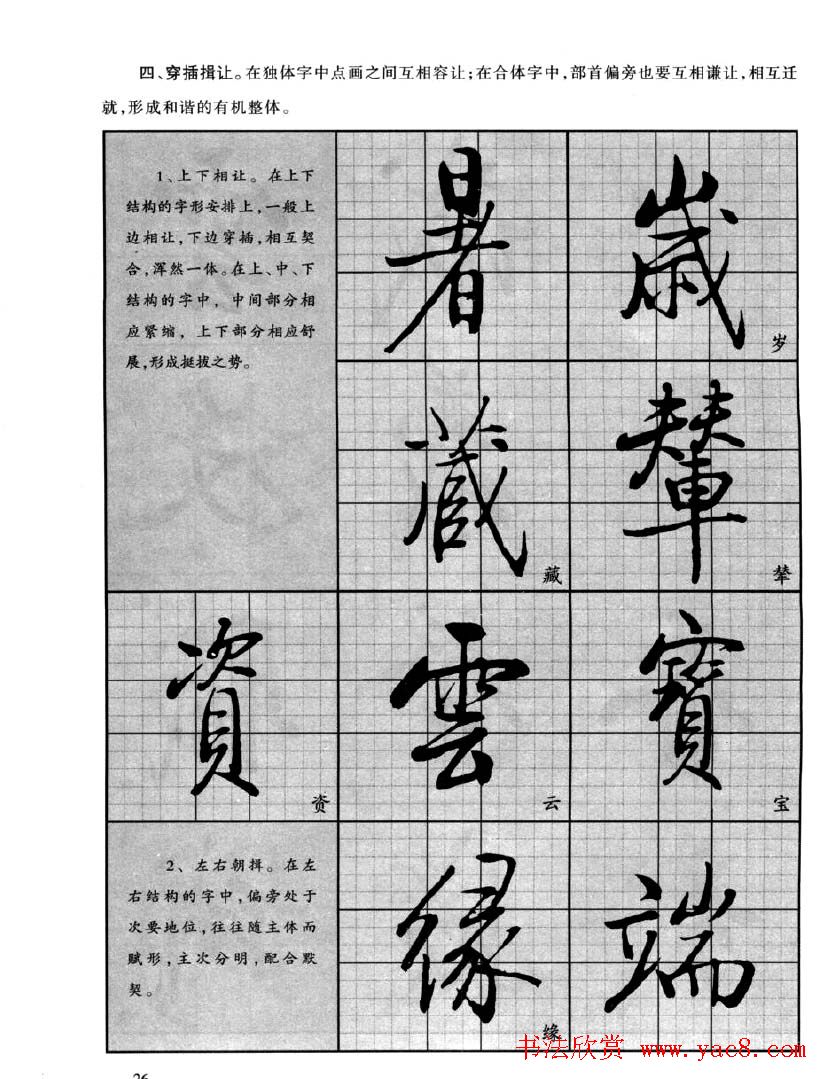 四、穿插揖让。在独体字中点画之间互相容让;在合体字中,部首偏旁也要互相谦让,相互迁
就,形成和谐的有机整体。
1、上下相让。在上下
结构的字形安排上,一般上
边相让,下边穿插,相互契
合,浑然一体。在上、中、下
结构的字中,中间部分相
应紧缩,上下部分相应舒
展,形成挺拔之势。
暑
歲
岁
藏
藏
輦
辇
資
资
雲
云
寶
宝
2、左右朝揖。在左
右结构的字中,偏旁处于
次要地位,往往随主体而
赋形,主次分明,配合默
契。
缘
缘
端
书法欣赏 www.yac8.com
26